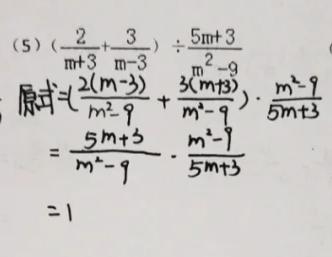 (5) (2/(m+3) + 3/(m-3)) ÷ (5m+3)/(m²-9)
原式=(2(m-3)/(m²-9) + 3(m+3)/(m²-9)) · (m²-9)/(5m+3)
= (5m+3)/(m²-9) · (m²-9)/(5m+3)
=1